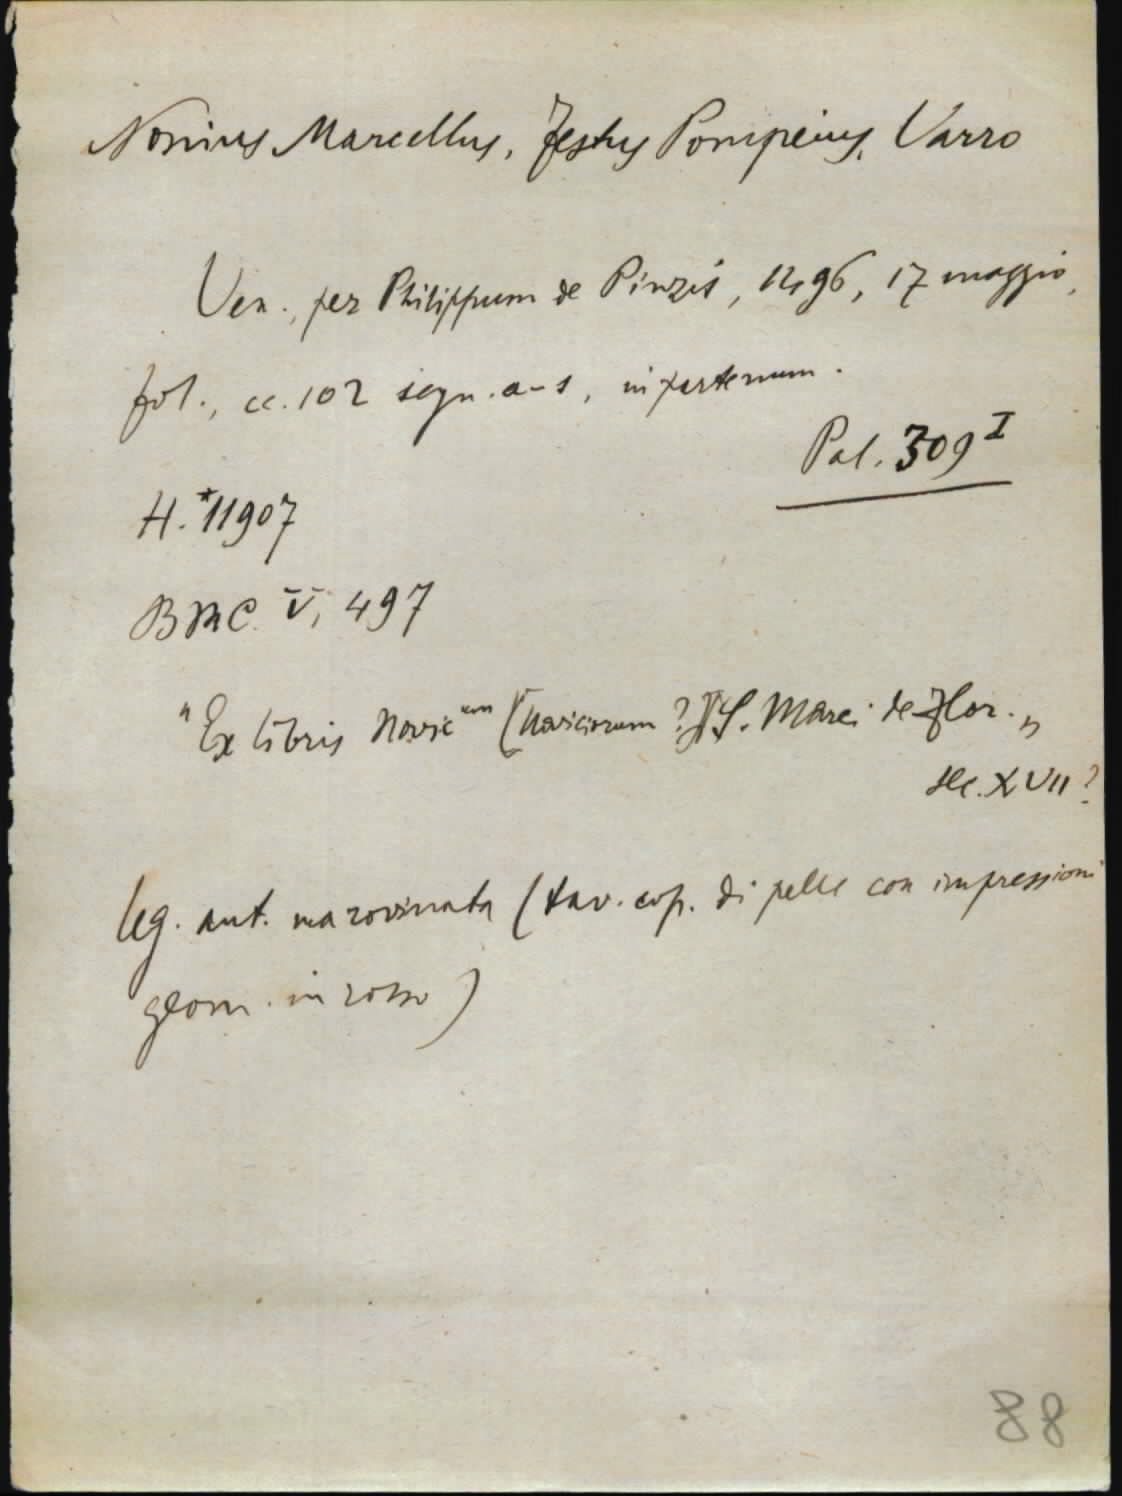 Nonius Marcellus, Festus Pompeius, Varro
Ven., per Philippum de Pinzis, 1496, 17 maggio,
fol., cc. 102 segn. a-s,
Pal. 309 I
H. *11907
BMC. V, 497
"Ex libris Novic um [Noviciorum ?] S. Marci de Flor."
sec. XVII ?
leg. ant. ma rovinata (tav. cop. di pelle con impressioni
geom. in rosso)
88